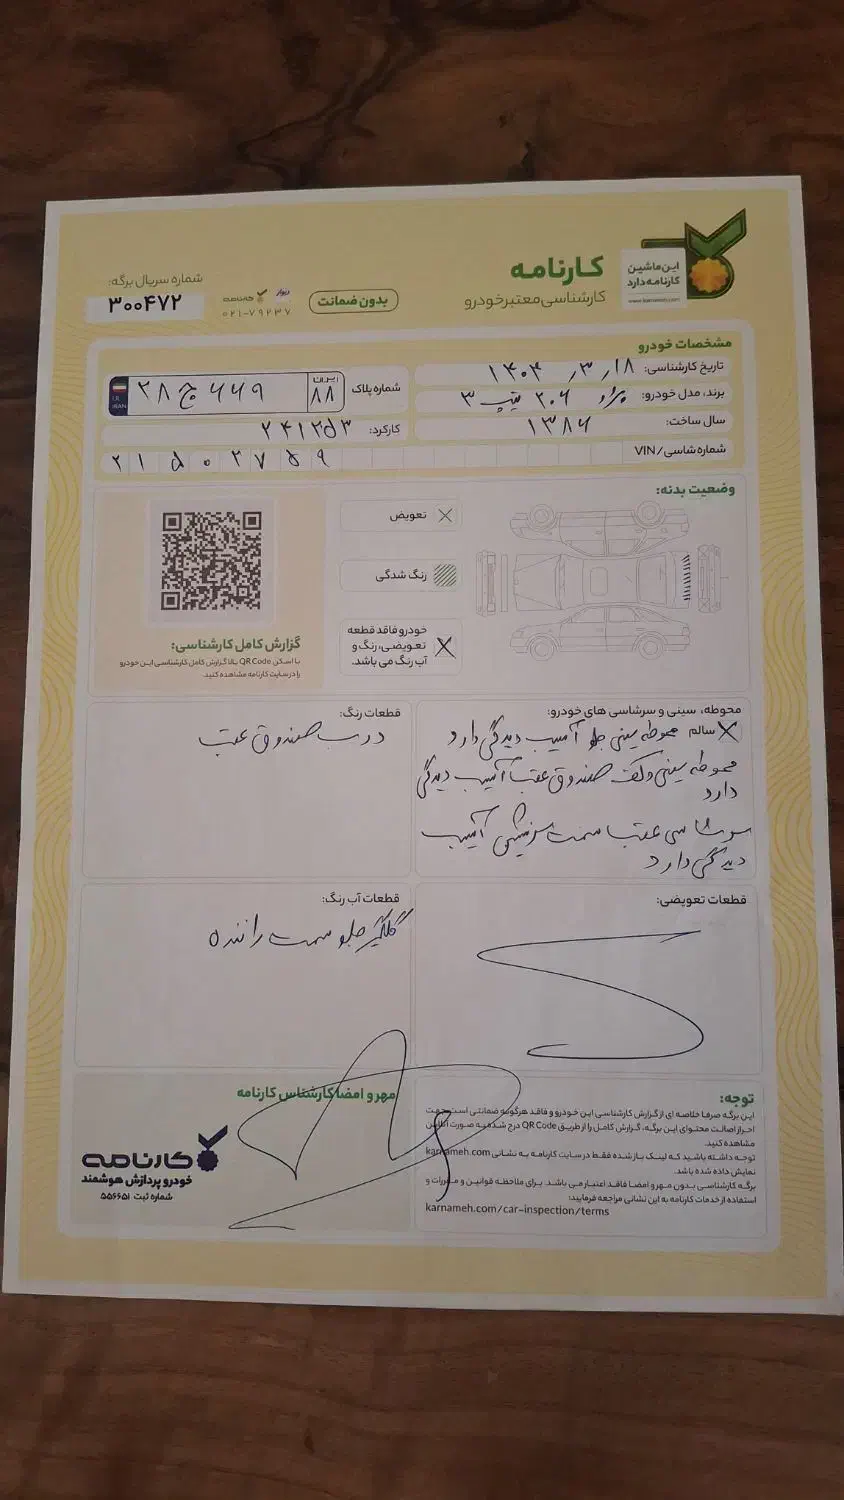 این ماشین
کارنامه دارد
www.karnameh.com
کارنامه
کارشناسی معتبر خودرو
بدون ضمانت
دیوار کارنامه
۰۲۱-۷۹۲۳۷
شماره سریال برگه:
۳۰۰۴۷۲
مشخصات خودرو
تاریخ کارشناسی: ۱۴۰۴/۳/۱۸
شماره پلاک ایران ۸۸ ۲۸ ج ۶۶۹
I.R. IRAN
برند، مدل خودرو: پژو ۲۰۶ تیپ ۳
سال ساخت: ۱۳۸۶
کارکرد: ۲۴۱۲۵۳
شماره شاسی/VIN
۲۱۵۰۲۷۵۹
وضعیت بدنه:
تعویض
رنگ شدگی
خودرو فاقد قطعه
تعویضی، رنگ و
آب رنگ می باشد.
گزارش کامل کارشناسی:
با اسکن QR Code بالا گزارش کامل کارشناسی این خودرو
را در سایت کارنامه مشاهده کنید.
محوطه، سینی و سرشاسی های خودرو:
سالم محوطه سینی جلو آسیب دیدگی دارد
محوطه سینی و کف صندوق عقب آسیب دیدگی
دارد
سرشاسی عقب سمت سرنشین آسیب
دیدگی دارد
قطعات رنگ:
درب صندوق عقب
قطعات تعویضی:
قطعات آب رنگ:
گلگیر جلو سمت راننده
توجه:
این برگه صرفا خلاصه ای از گزارش کارشناسی این خودرو و فاقد هرگونه ضمانتی است جهت
احراز اصالت محتوای این برگه، گزارش کامل را از طریق QR Code درج شده به صورت آنلاین
مشاهده کنید.
توجه داشته باشید که لینک باز شده فقط در سایت کارنامه به نشانی karnameh.com
نمایش داده شده باشد.
برگه کارشناسی بدون مهر و امضا فاقد اعتبار می باشد. برای ملاحظه قوانین و مقررات و
استفاده از خدمات کارنامه به این نشانی مراجعه فرمایید:
karnameh.com/car-inspection/terms
مهر و امضا کارشناس کارنامه
کارنامه
خودرو پردازش هوشمند
شماره ثبت ۵۵۶۶۵۱